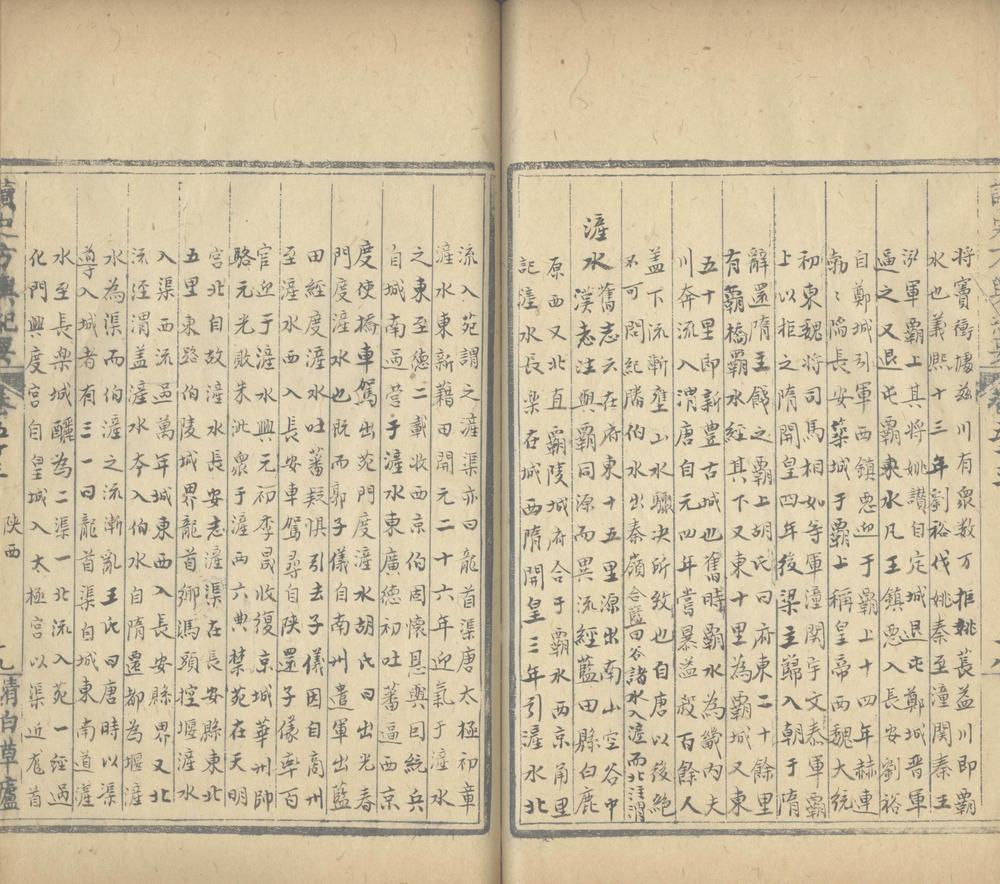 將竇衝據茲川有眾数万拒姚萇益川即霸
水也義熙十三年劉裕伐姚秦至潼関秦王
泓軍霸上其將姚讚自定城退屯鄭城晋軍
逼之又退屯霸東水凡王鎮悪入長安劉裕
自鄭城引軍西鎮悪迎于霸上十四年赫連
勃〻陥長安築城于霸上稱皇帝西魏大統
初東魏將司馬相如等軍潼関宇文泰軍霸
上以拒之隋開皇四年後梁主歸入朝于隋
辭還隋主餞之霸上胡氏曰府東二十餘里
有霸橋霸水経其下又東十里為霸城又東
五十里即新豊古城也舊時霸水為畿内大
川奔流入渭唐自元四年嘗暴溢殺百餘人
盖下流漸壅山水驟决所致也自唐以後絶
不可問紀勝伯水出秦嶺合藍田谷諸水入滻而北注渭
滻水舊志云在府東十五里源出南山空谷中
漢志注與霸同源而異流經藍田縣白鹿
原西又北直霸陵城府合于霸水西京甬里
記滻水長楽在城西隋開皇三年引滻水北
流入苑謂之滻渠亦曰龍首渠唐太極初章
滻水東新籍田開元二十六年迎氣于滻水
之東至徳二載收西京伯固懷恩與囘紇兵
自城南過营于滻水東廣徳初吐蕃逼西京
度使橋車駕出苑門度滻水胡氏曰出光春
門度滻水也既而郭子儀自南州遣軍出藍
田經度滻水吐蕃疑惧引去子儀因自商州
至滻水西入長安車駕尋自陕還子儀率百
官迎于滻水興元初李晟收復京城華州帥
駱元光敗朱泚衆于滻西六典禁苑在天明
宮北自故滻水長安志滻渠在長安縣東北
五里東路伯陵城界龍首鄉馮頭控堰滻水
入渠西流過萬年城東西入長安縣界又北
流経渭盖滻水夲入伯水自隋遷都為堰滻
水為渠而伯滻之流漸亂王氏曰唐時以渠
導入城者有三一曰龍首渠自城東南道滻
水至長楽城醽為二渠一北流入苑一經過
化門興度宫自皇城入太極宫以渠近竜首
讀史方輿紀要 卷五十三 陕西 九 清白草廬